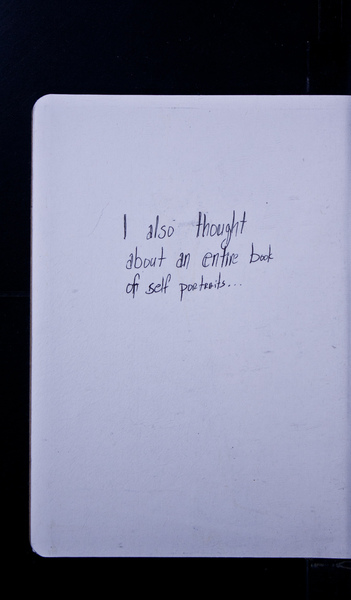 I also thought
about an entire book
of self portraits...